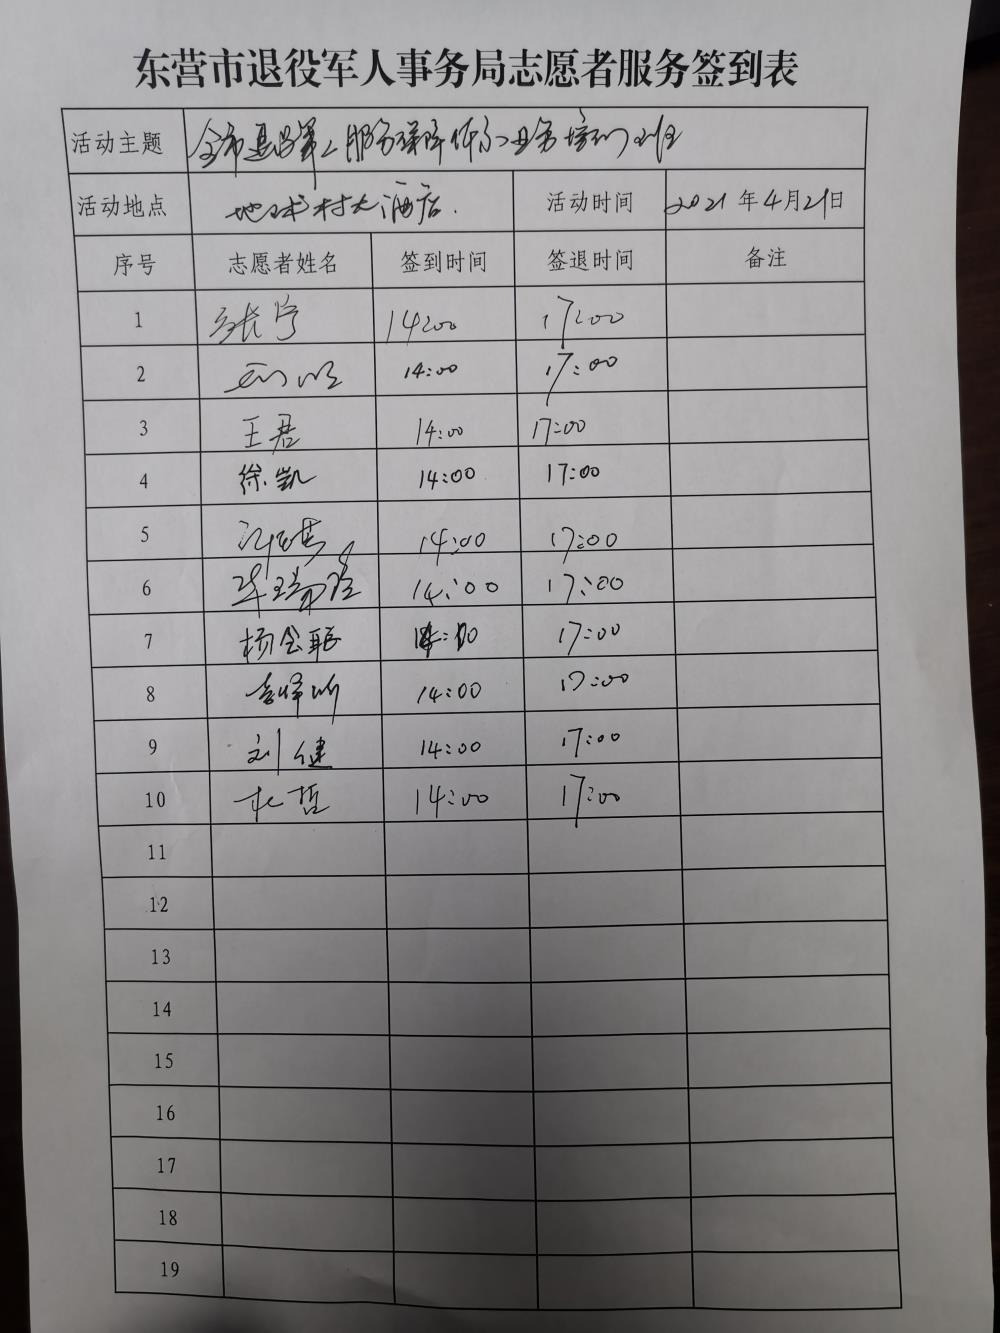 东营市退役军人事务局志愿者服务签到表
活动主题 全市 服务保障体系业务培训班
活动地点 地球村大酒店. 活动时间 2021年4月21日
序号 志愿者姓名 签到时间 签退时间 备注
1 张宁 14:00 17:00
2 14:00 17:00
3 王君 14:00 17:00
4 徐凯 14:00 17:00
5 14:00 17:00
6 14:00 17:00
7 杨金聪 17:00
8 14:00 17:00
9 刘健 14:00 17:00
10 杜哲 14:00 17:00
11
12
13
14
15
16
17
18
19